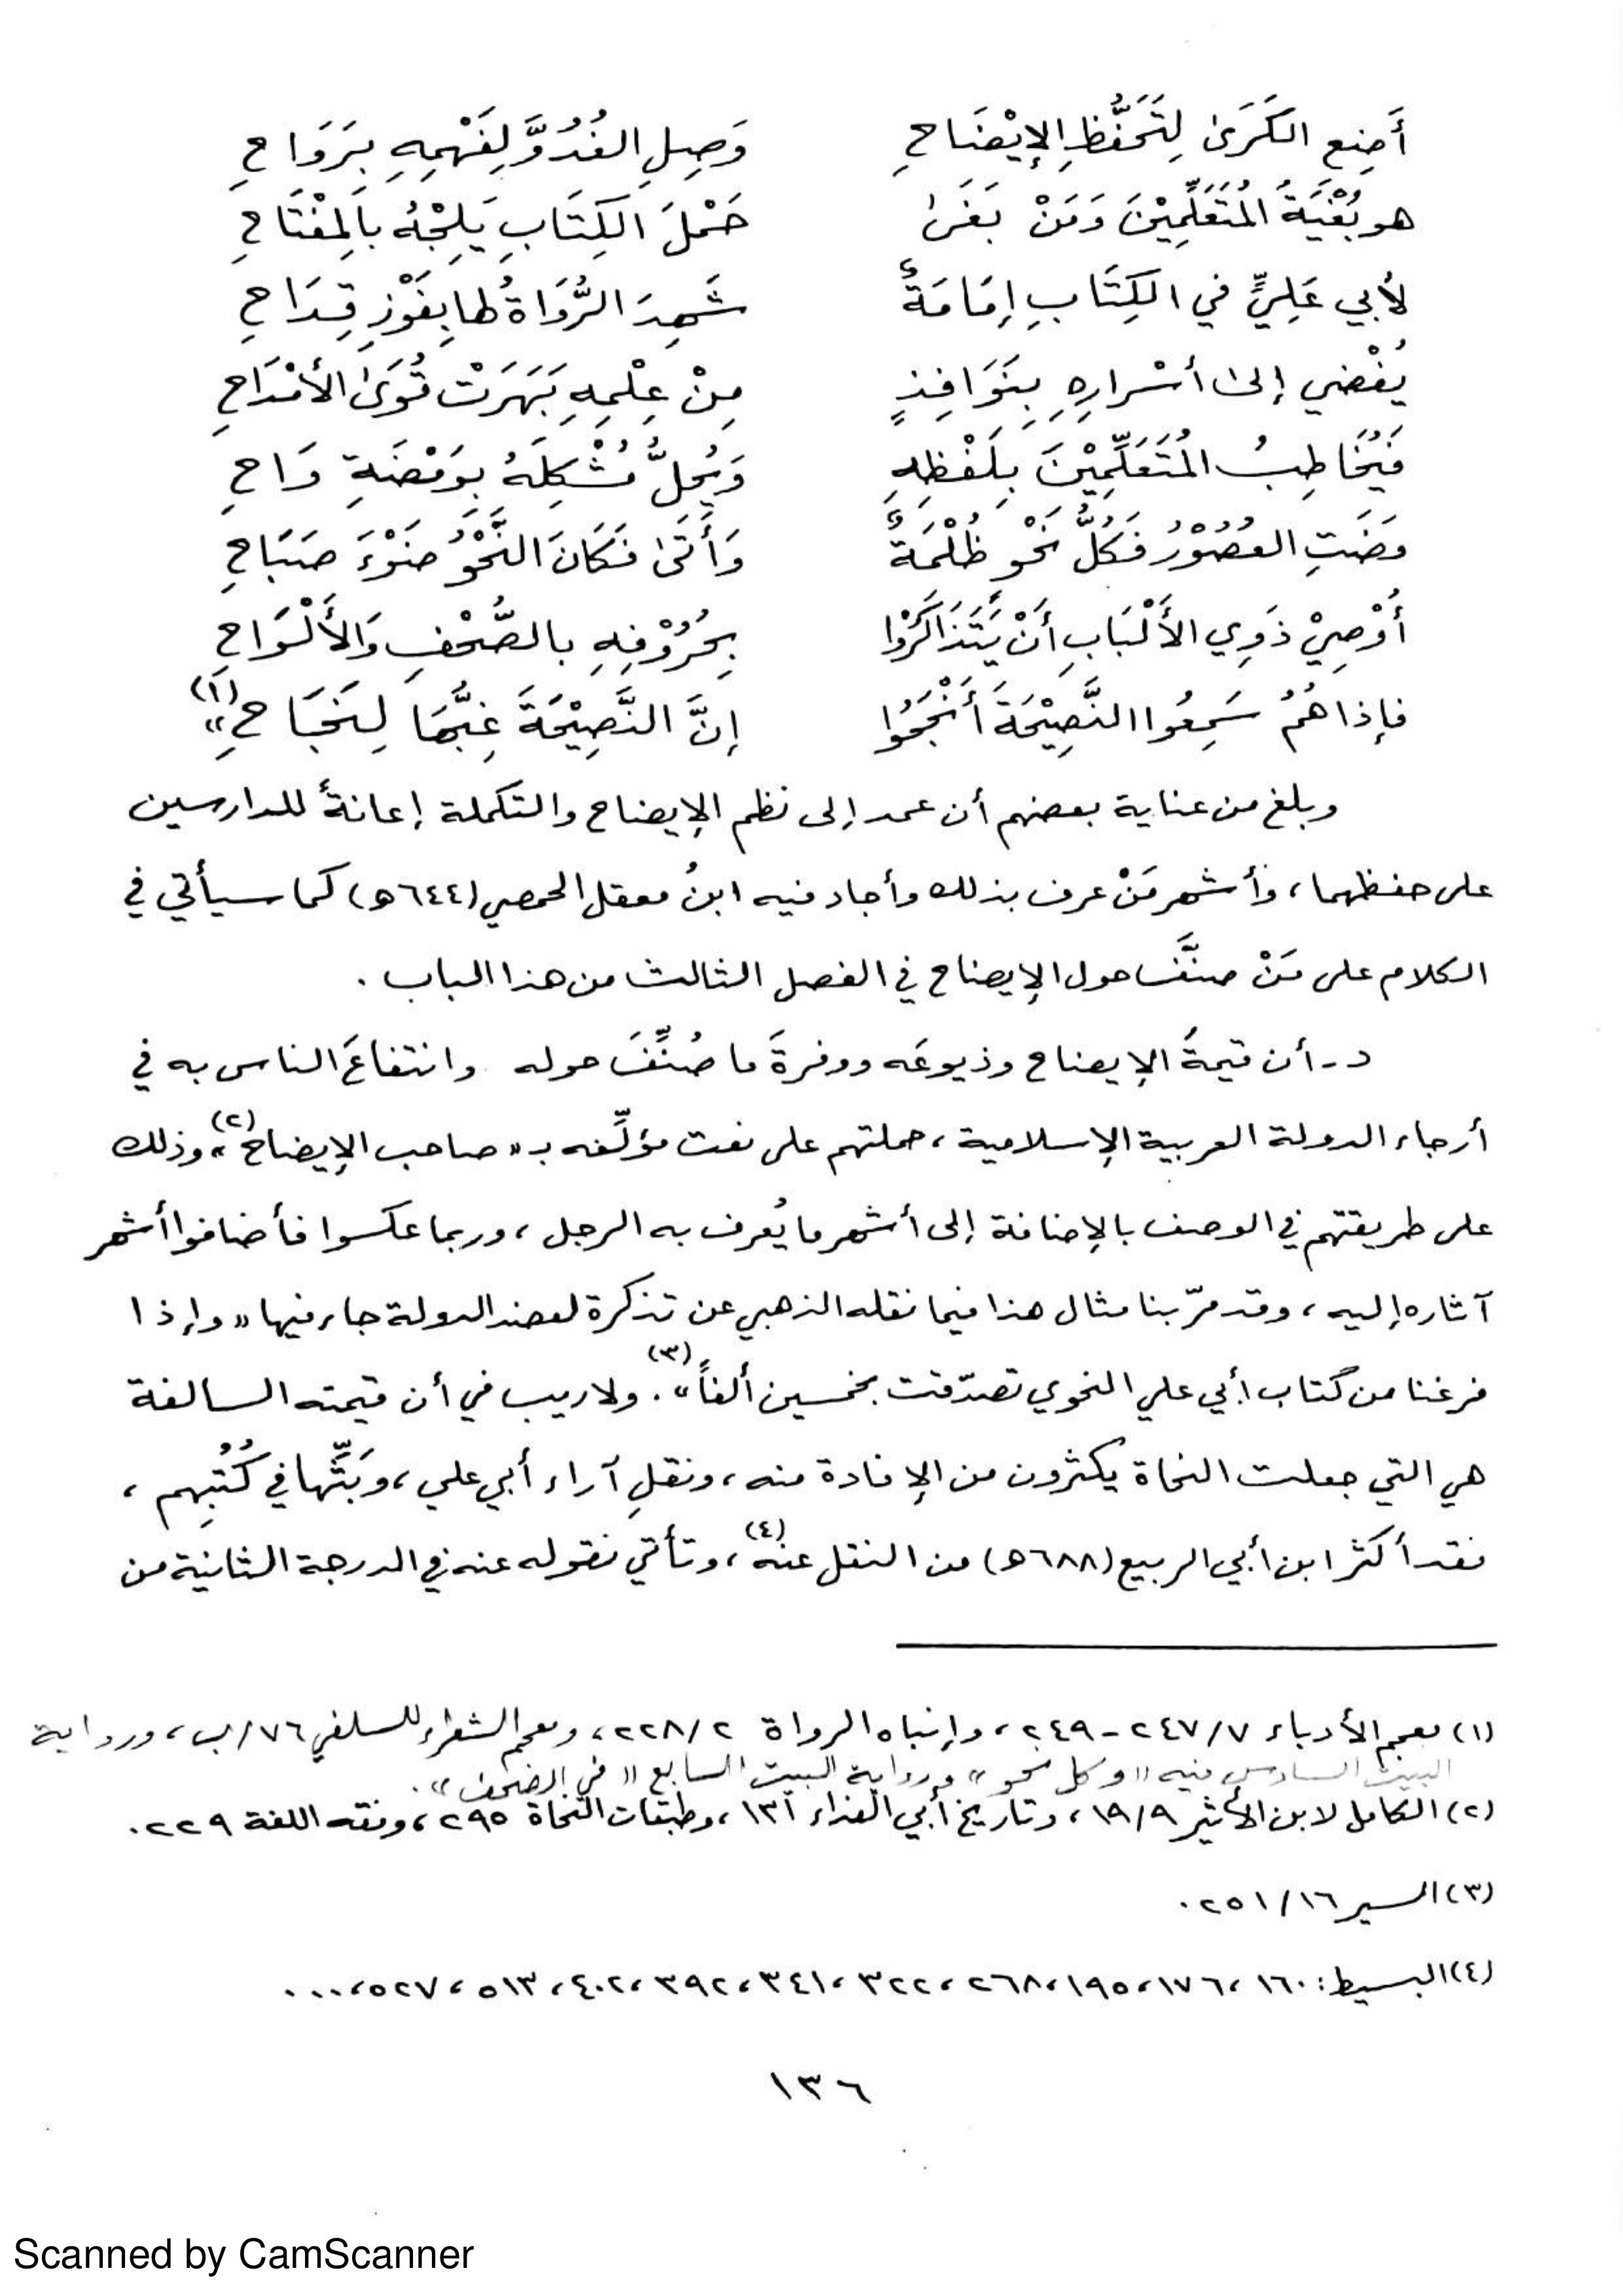 أَضِعِ الكَرَىٰ لِتَحَفُّظِ الإِيْضَاحِ وَصِلِ الغُدُوَّ لِفَهْمِهِ بِرَوَاحِ
هو بُغْيَةُ المُتَعَلِّمِيْنَ وَمَنْ بَغَىٰ حَمْلَ الكِتَابِ يَلِجْهُ بِالمِفْتَاحِ
لأبي عَلِيٍّ في الكِتَابِ إِمَامَةٌ شَهِدَ الرُّوَاةُ لها بِفَوْزِ قِدَاحِ
يُفْضي إلىٰ أسْرارِهِ بِنَوَافِذٍ مِنْ عِلْمِهِ بَهَرَتْ قُوَىٰ الأَمْدَاحِ
فَيُخَاطِبُ المُتَعَلِّمِيْنَ بِلَفْظِهِ وَيُحِلُّ مُشْكِلَهُ بِوَمْضَةِ وَاحِ
مَضَتِ العُصُوْرُ فَكُلُّ نَحْوٍ ظُلْمَةٌ وَأَتَىٰ فَكَانَ النَّحْوُ ضَوْءَ صَبَاحِ
أُوْصِيْ ذَوِي الأَلْبَابِ أَنْ يَتَذَاكَرُوْا بِحُرُوْفِهِ بالصُّحْفِ وَالأَلْوَاحِ
فإذا هُمُ سَمِعُوا النَّصِيْحَةَ أَنْجَحُوْا إِنَّ النَّصِيْحَةَ غِبُّهَا لِنَجَاحِ»(١)
وبلغ من عناية بعضهم أن عمد إلى نظم الإيضاح والتكملة إعانةً للدارسين
على حفظهما، وأشهر مَنْ عرف بذلك وأجاد فيه ابنُ معقل الحمصي (٦٤٤ه) كما سيأتي في
الكلام على مَنْ صنَّف حول الإيضاح في الفصل الثالث من هذا الباب .
د- أن قيمةَ الإيضاح وذيوعَه ووفرةَ ما صُنِّفَ حوله وانتفاعَ الناس به في
أرجاء الدولة العربية الإسلامية، حملتهم على نعت مؤلِّفه بـ «صاحب الإيضاح»(٢)، وذلك
على طريقتهم في الوصف بالإضافة إلى أشهر ما يُعرف به الرجل، وربما عكسوا فأضافوا أشهر
آثاره إليه، وقد مرّ بنا مثال هذا فيما نقله الذهبي عن تذكرة لعضد الدولة جاء فيها «وإذا
فرغنا من كتاب أبي علي النحوي تصدّقت بخمسين ألفاً»(٣). ولاريب في أن قيمته السالفة
هي التي جعلت النحاة يكثرون من الإفادة منه، ونقلِ آراء أبي علي، وبَثِّها في كُتُبِهم،
فقد أكثر ابن أبي الربيع (٦٨٨ه) من النقل عنه(٤)، وتأتي نقوله عنه في الدرجة الثانية من
(١) معجم الأدباء ٢٤٧/٧ - ٢٤٩، وإنباه الرواة ٢٢٨/٢، ومعجم الشعراء للسلفي ٧٦/ب، ورواية
البيت السادس فيه «وكل نحو» ورواية البيت السابع «في الصحف».
(٢) الكامل لابن الأثير ١٩/٩، وتاريخ أبي الفداء ١٣١، وطبقات النحاة ٢٩٥، وفقه اللغة ٢٢٩.
(٣) السير ٢٥١/١٦.
(٤) البسيط: ١٦٠، ١٧٦، ١٩٥، ٢٦٨، ٣٢٢، ٣٤١، ٣٩٢، ٤٠٢، ٥١٣، ٥٢٧، ...
١٣٦
Scanned by CamScanner